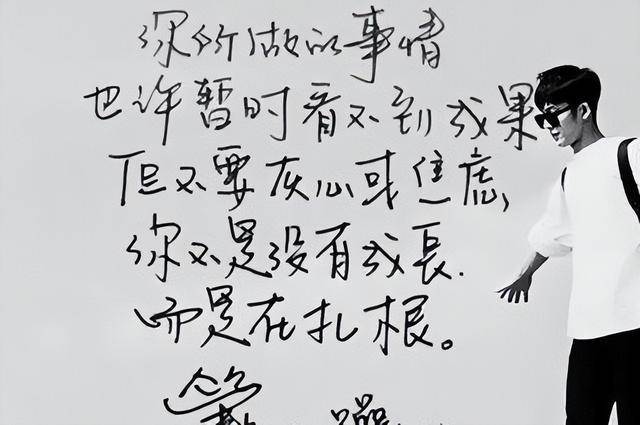 你所做的事情
也许暂时看不到成果
但不要灰心或焦虑,
你不是没有成长.
而是在扎根。